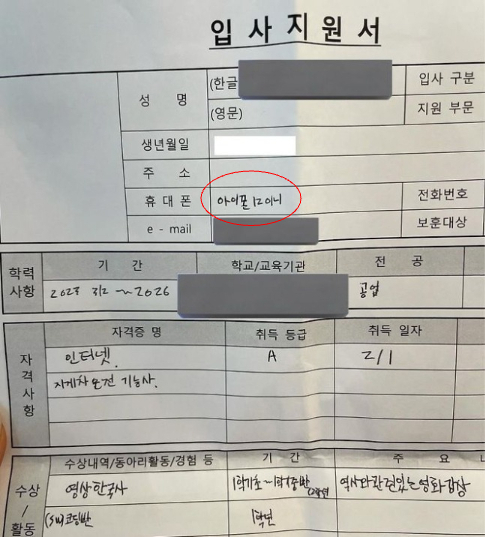 입사지원서
성 명
(한글
(영문)
입사 구분
지원 부문
생년월일
주 소
휴대폰 아이폰12미니 전화번호
e - mail 보훈대상
학력사항
기 간 학교/교육기관 전 공
2023 3/2 ~2026 공업
자격사항
자격증 명 취득 등급 취득 일자
인터넷. A 2/1
지게차운전 기능사.
수상/활동
수상내역/동아리활동/경험 등 기 간 주 요
영상한국사 1학기초~ 역사와관련있는영화감상
(SW)코딩반 1학년